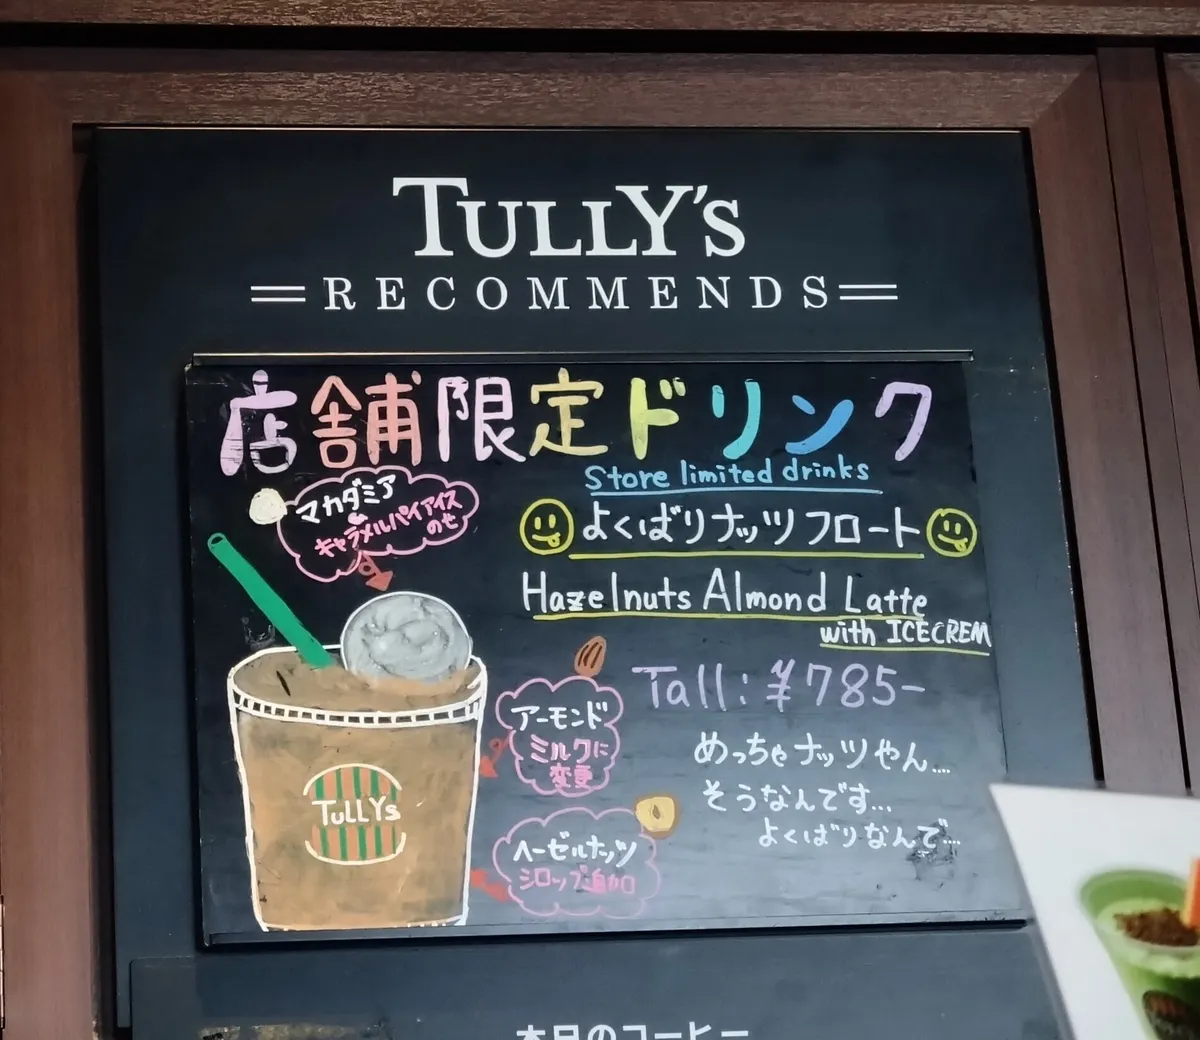 TULLY'S
RECOMMENDS
店舗限定ドリンク
Store limited drinks
マカダミア
キャラメルパイアイス
のせ
よくばりナッツフロート
Hazelnuts Almond Latte
with ICECREM
Tall: ¥785-
アーモンド
ミルクに
変更
めっちゃナッツやん...
そうなんです...
よくばりなんで...
TULLYs
ヘーゼルナッツ
シロップ追加
本日のコーヒー